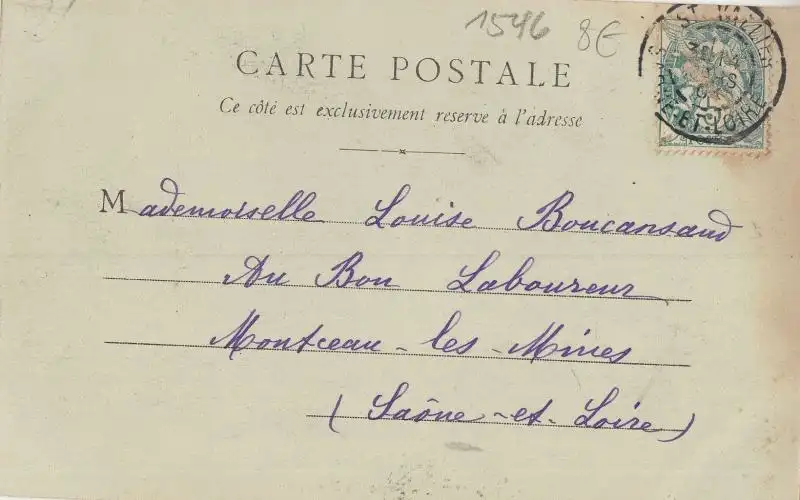 1546 8€
CARTE POSTALE
Ce côté est exclusivement reserve à l'adresse
Mademoiselle Louise Boucansaud
Au Bon Laboureur
Montceau-les-Mines
(Saône-et-Loire)
ST. VALLIER
NE-ET-LOIRE